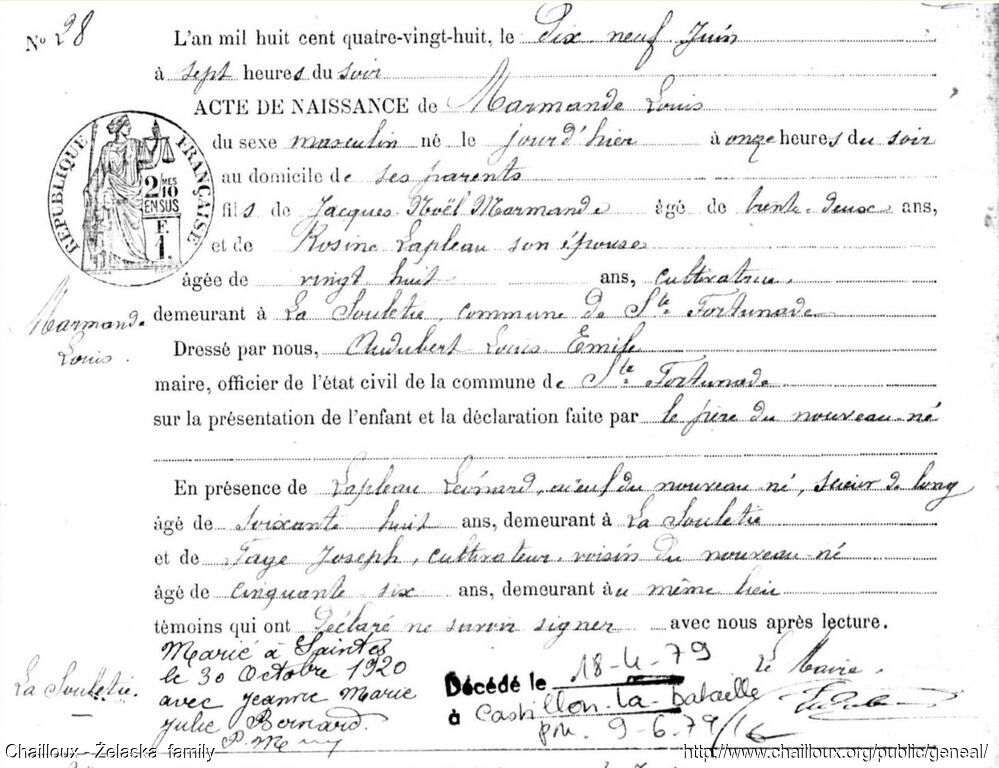 No 28
L'an mil huit cent quatre-vingt-huit, le Dix neuf Juin
à sept heures du soir
ACTE DE NAISSANCE de Marmande Louis
du sexe masculin né le jourd'hier à onze heures du soir
au domicile de ses parents
fils de Jacques Noël Marmande âgé de trente-deux ans,
et de Rosine Lapleau son épouse
âgée de vingt huit ans, cultivateurs
demeurant à La Souletie, commune de Ste Fortunade
Marmande
Louis.
Dressé par nous, Audubert Louis Emile
maire, officier de l'état civil de la commune de Ste Fortunade
sur la présentation de l'enfant et la déclaration faite par le père du nouveau-né
En présence de Lapleau Léonard, aïeul du nouveau né, scieur de long
âgé de soixante huit ans, demeurant à La Souletie
et de Faye Joseph, cultivateur, voisin du nouveau-né
âgé de cinquante six ans, demeurant au même lieu
témoins qui ont Déclaré ne savoir signer avec nous après lecture.
Marié à Saintes
le 30 Octobre 1920
avec Jeanne Marie
Julie Bernard.
La Souletie.
Décédé le 18-4-79
à Castillon-la-bataille
9-6-79
Le Maire,
RÉPUBLIQUE FRANÇAISE
2 MES
10
EN SUS
F.
1.
Chailloux - Żelaska family
http://www.chailloux.org/public/geneal/